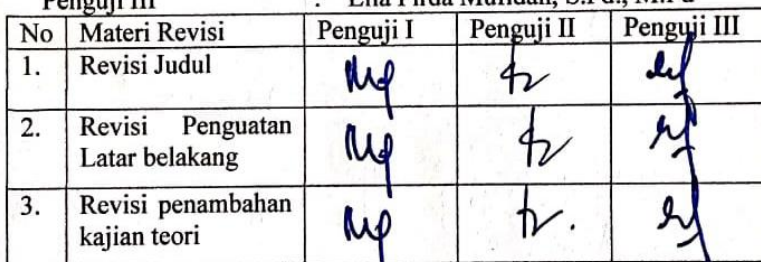 Penguji III :
No Materi Revisi Penguji I Penguji II Penguji III
1. Revisi Judul
2. Revisi Penguatan
Latar belakang
3. Revisi penambahan
kajian teori